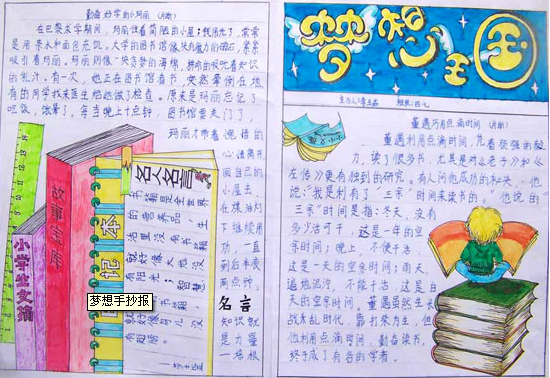 勤奋好学的小玛丽（片断）
在巴黎求学期间，玛丽住着简陋的小屋；钱用光了，常常
是用茶水和面包充饥。大学的图书馆像块有魔力的磁石，紧紧
吸引着玛丽。玛丽像一块贪婪的海绵，拼命的吸吮着知识
的乳汁。有一次，她正在图书馆看书，突然晕倒在地
有的同学找来医生给她做了检查。原来是玛丽忘记了
吃饭，饿晕了，每当晚上十点钟，图书馆要关门了，
玛丽才带着
心情离开
回自己的
小屋去
在煤油灯
下继续用
功，一直
到后半夜
两点钟。
名言
知识就
是力量
——培根
名人名言
书籍是全世界
的营养品，生
活里没有书籍
就好像大地没
有阳光；智慧
里没有书籍
就好像鸟儿没
有翅膀。
记本
小学生文摘
梦想手抄报
梦想王国
董遇巧用点滴时间（片断）
董遇利用点滴时间，凭着顽强的毅
力，读了很多书，尤其是对《老子》和《
左传》更有独到的研究。有人问他成功的秘诀，他
说：“我是利有了‘三余’时间来读书的。”他说的
“三余”时间是指：冬天，没有
多少活可干，这是一年的空
余时间；晚上，不便干活，
这是一天的空余时间；雨天，
遍地泥泞，不能干活，这是白
天的空余时间。董遇虽然生长
战末乱时代，靠打柴为生，但
他利用点滴时间，勤奋读书，
终于成了有名的学者。